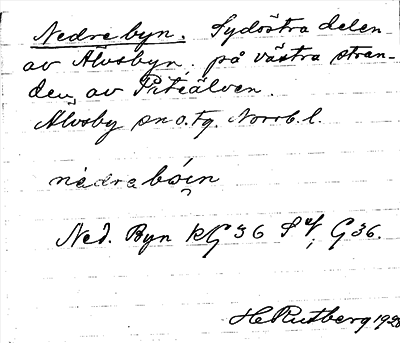 Nedre byn. Sydöstra delen
av Älvsbyn, på västra stran-
den av Piteälven.
Älvsby sn o. tg. Norrb. l.
nedre
Ned. Byn kG 36 G 36.
H Rutberg 1928